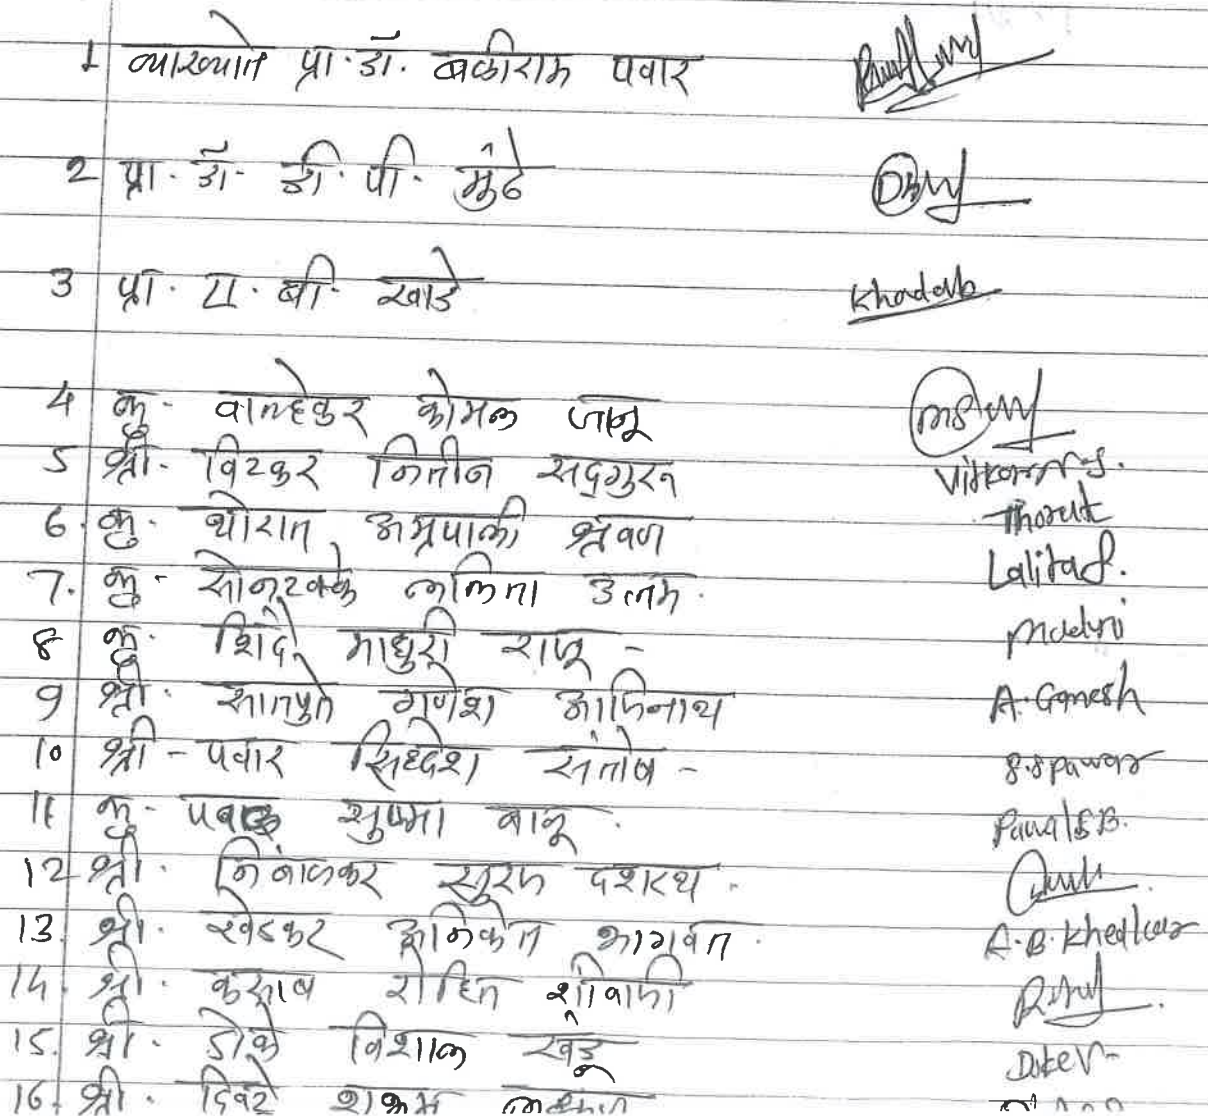 1 व्याख्याते प्रा. डॉ. बळीराम पवार
2 प्रा. डॉ. डी. पी. मुंढे
3 प्रा. रा. बी. खाडे Khadeb
4 कु. वाल्हेकर कोमल जानू
5 श्री. विटकर नितीन सद्गुरु Vitkar N.S.
6. कु. थोरात अम्रपाली श्रवण Thorat
7. कु. सोनटक्के ललिता उत्तम. Lalita S.
8 कु. शिंदे माधुरी राजू - Madhuri
9 श्री. सातपुते गणेश आदिनाथ A. Ganesh
10 श्री - पवार सिध्देश संतोष - S.S pawar
11 कु - पवार सुष्मा बाबू. Pawar S.B.
12 श्री. निंबाळकर सुरज दशरथ.
13. श्री. खेडकर अनिकेत भागवत. A.B. Khedkar
14. श्री. कसाब रोहित शिवाजी
15. श्री. डोके विशाल खंडू Doke V-
16. श्री. दिवटे